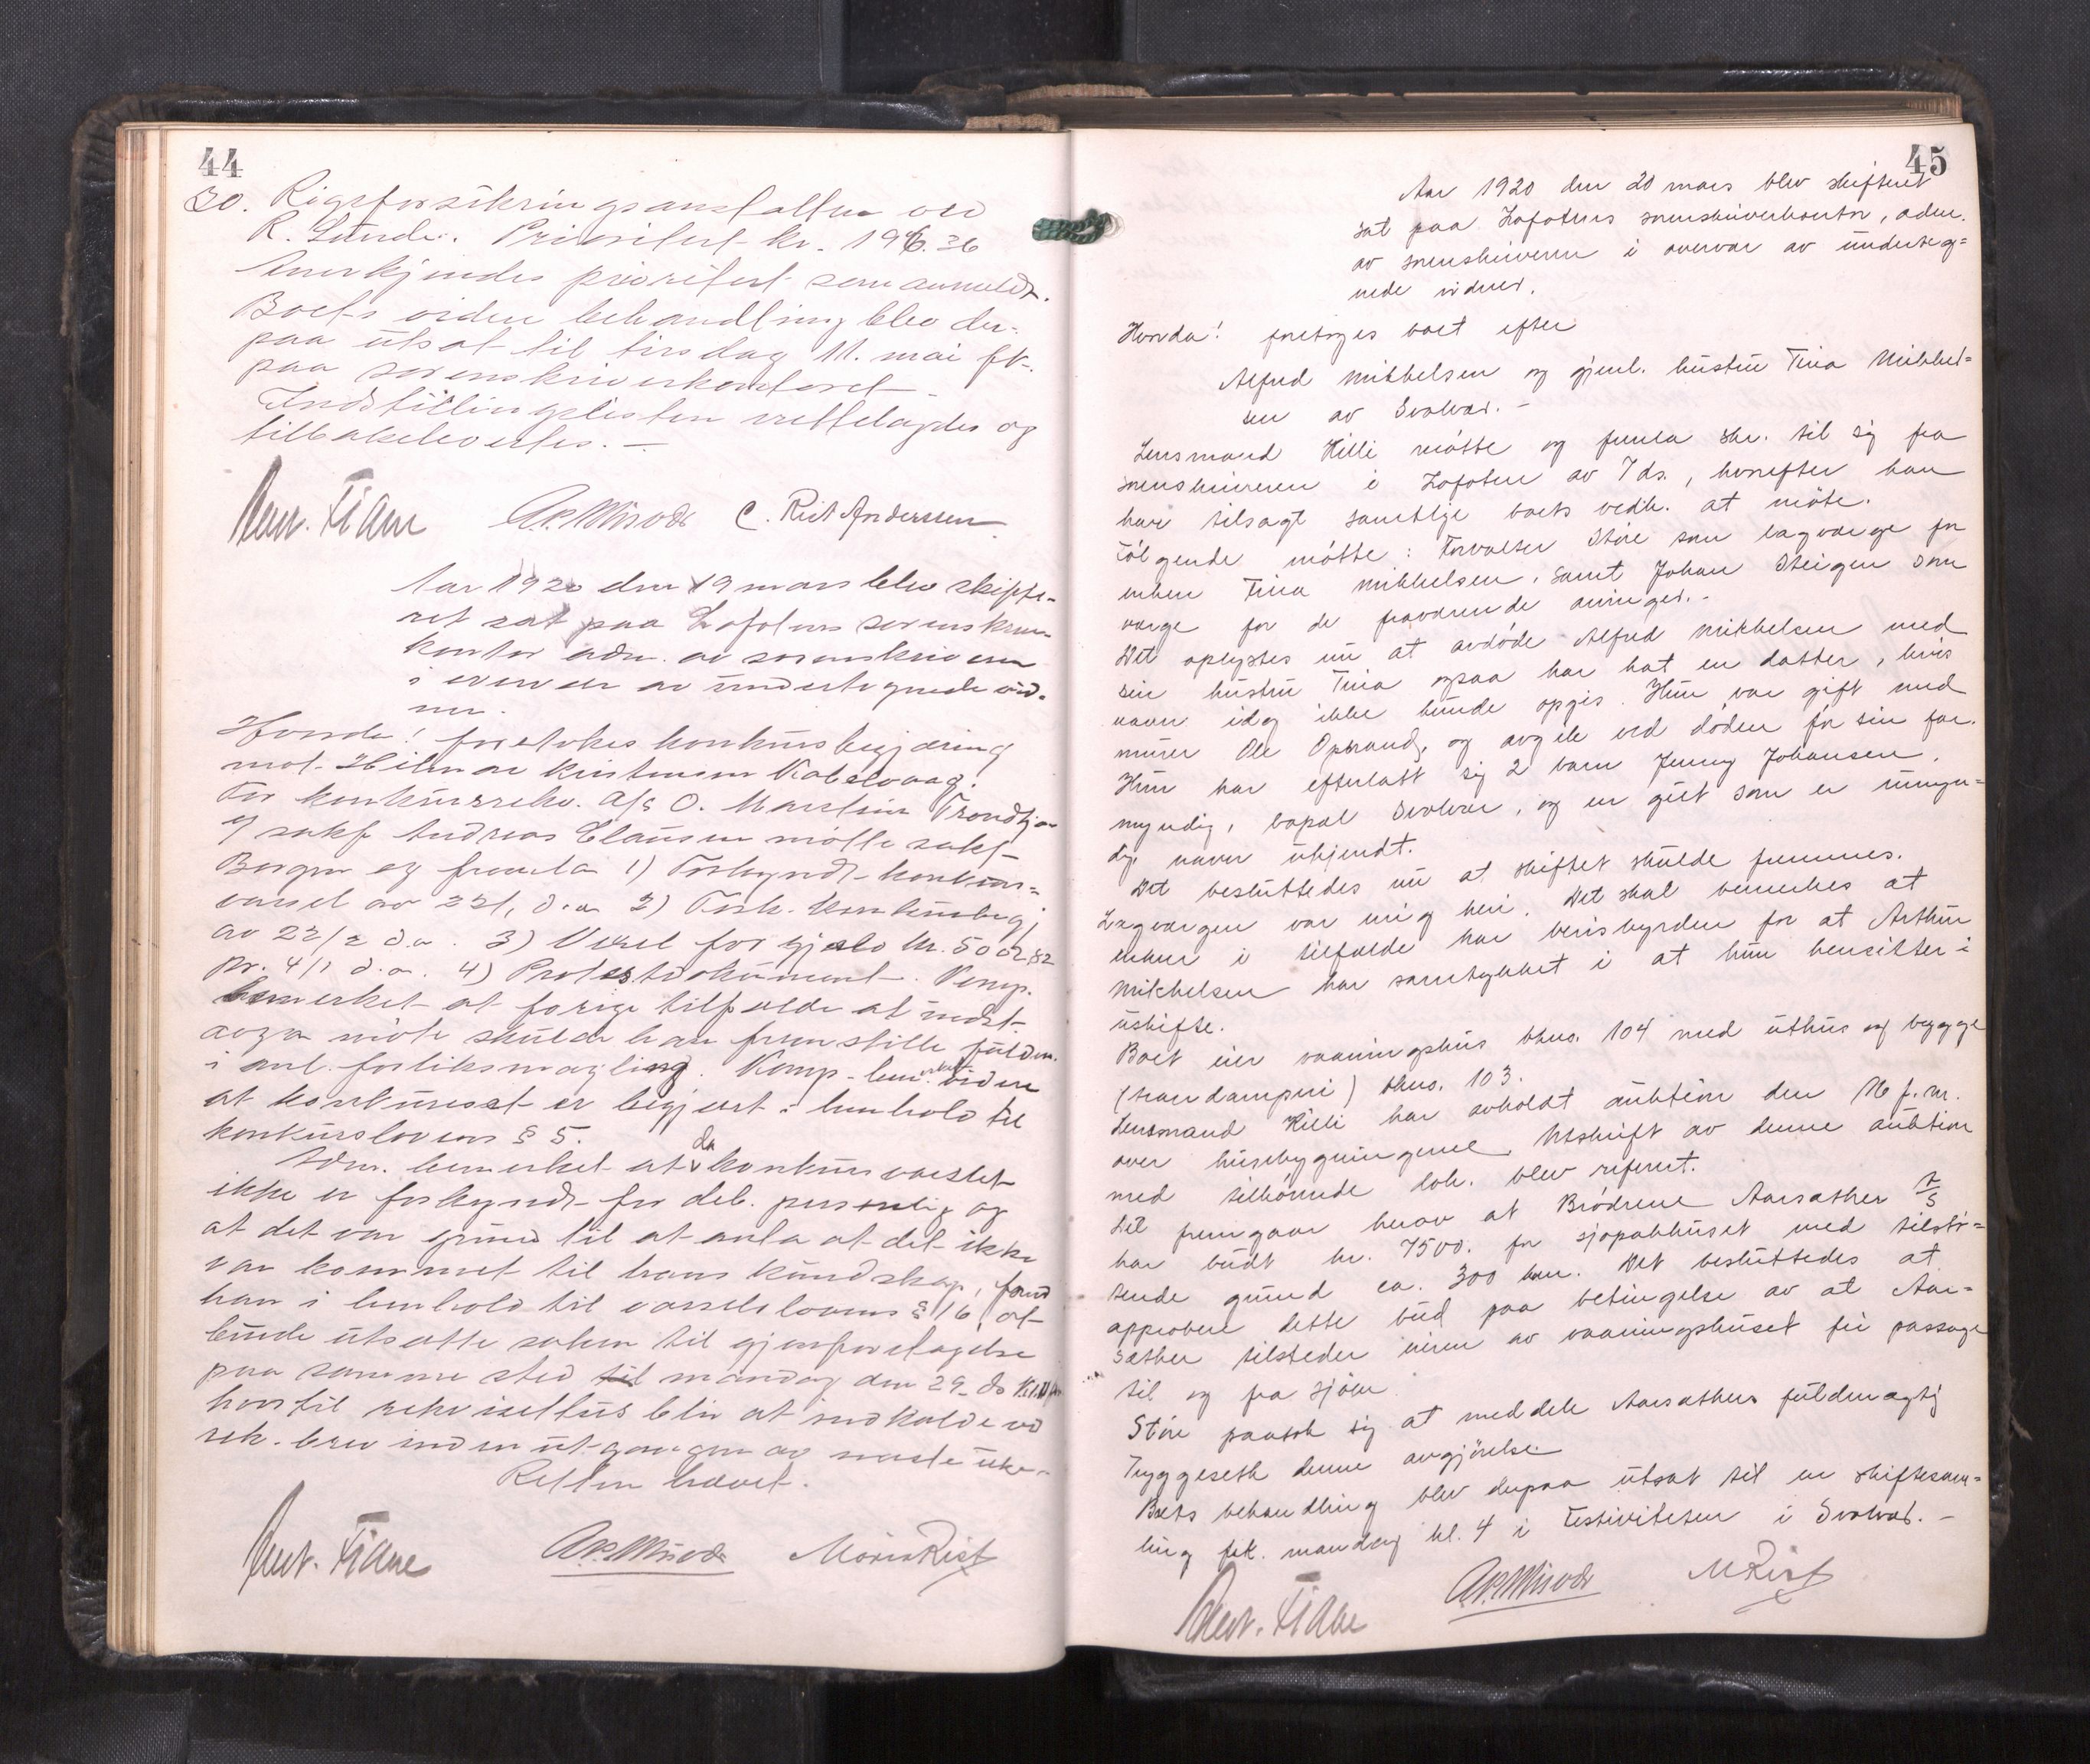 44
30. Rigsforsikringsanstalten ved
R. Lunde. Prioritert kr. 196.36
Anerkjendes prioritert som anmeldt.
Boets videre behandling blev der-
paa utsat til tirsdag 11. mai fk.
paa sorenskriverkontoret
Indstillingslisten rettelagdes og
tilbakelevertes. —
C. Rist Anderssen
Aar 1920 den 19 mars blev skifte-
ret sat paa Lofotens sorenskriver
kontor adm. av sorenskriveren
i overvær av undertegnede vid-
ner.
Hvorda! foretokes konkursbegjæring
mot Hilmar Kristensen Kabelvaag.
For konkursrekv. A/S O. Marstein Trondhjem
og sakf. Andreas Clausen møtte sakf.
Borgen og fremla 1) Forkyndt konkurs-
varsel av 22/1 d.a 2) Fork. konkursbegj
av 22/2 d.a. 3) Vexel for gjæld kr. 5002,82
pr. 4/1 d.a. 4) Protestdokument. Komp.
bemerket at forige tilfælde at indst.
møte skulde han fremstille fuldm.
i anl. forliksmægling. Komp. bemerket videre
at konkursset er begjært i henhold til
konkurslovens § 5.
Adm. bemerket at da konkursvarslet
ikke er forkyndt for deb. personlig og
at det var grund til at anta at det ikke
var kommet til hans kundskap, fandt
han i henhold til varselslovens § 16, at
burde utsætte saken til gjenforetagelse
paa samme sted til mandag den 29 ds kl. 11
hvortil rekvisitus blir at indkalde ved
rek. brev inden utgangen av næste uke.
Retten hævet.
Moris Rist
45
Aar 1920 den 20 mars blev skifteret
sat paa Lofotens sorenskriverkontor, adm.
av sorenskriveren i overvær av underteg=
nede vidner.
Hvorda! foretoges boet efter
Alfred Mikkelsen og gjenl. hustru Tina Mikkel=
sen av Svolvær. —
Lensmand Killi møtte og fremla skr. til sig fra
sorenskriveren i Lofoten av 7 ds., hvorefter han
har tilsagt samtlige boets vedk. at møte.
Følgende møtte: Forvalter Støre som lagværge for
enken Tina Mikkelsen, samt Johan Steigen som
værge for de fraværende arvinger. -
Det oplystes nu at avdøde Alfred Mikkelsen med
sin hustru Tina ogsaa har hat en datter, hvis
navn idag ikke kunde opgis. Hun var gift med
murer Ole Opsand, og avgik ved døden før sin far.
Hun har efterlatt sig 2 barn Jenny Johansen,
myndig, bopæl Svolvær, og en gut som er umyn=
dig, navn ukjendt.
Det besluttedes nu at skiftet skulde fremmes.
Lagværgen var enig heri. Det skal bemerkes at
enken i tilfælde har bevisbyrden for at Arthur
Mikkelsen har samtykket i at hun hensitter i
uskifte.
Boet eier vaaningshus bnus. 104 med uthus og brygge
(trandamperi) bnus. 103.
Lensmand Killi har avholdt auktion den 16 f.m.
over husebygningene. Utskrift av denne auktion
med tilhørende lok. blev referert.
Det fremgaar herav at Brødrene Aarsæther A/S
har budt kr. 7500. for sjøpakhuset med tilstø=
tende grund ca. 300 kvm. Det besluttedes at
approbere dette bud paa betingelse av at Aar=
sæther tilsteder eieren av vaaningshuset fri passage
til og fra sjøen.
Støre paatok sig at meddele Aarsæthers fuldmægtig
Tryggeseth denne avgjørelse.
Boets behandling blev derpaa utsat til en skiftesam=
ling fk. mandag kl. 4 i Festiviteten i Svolvær. —
M Rist